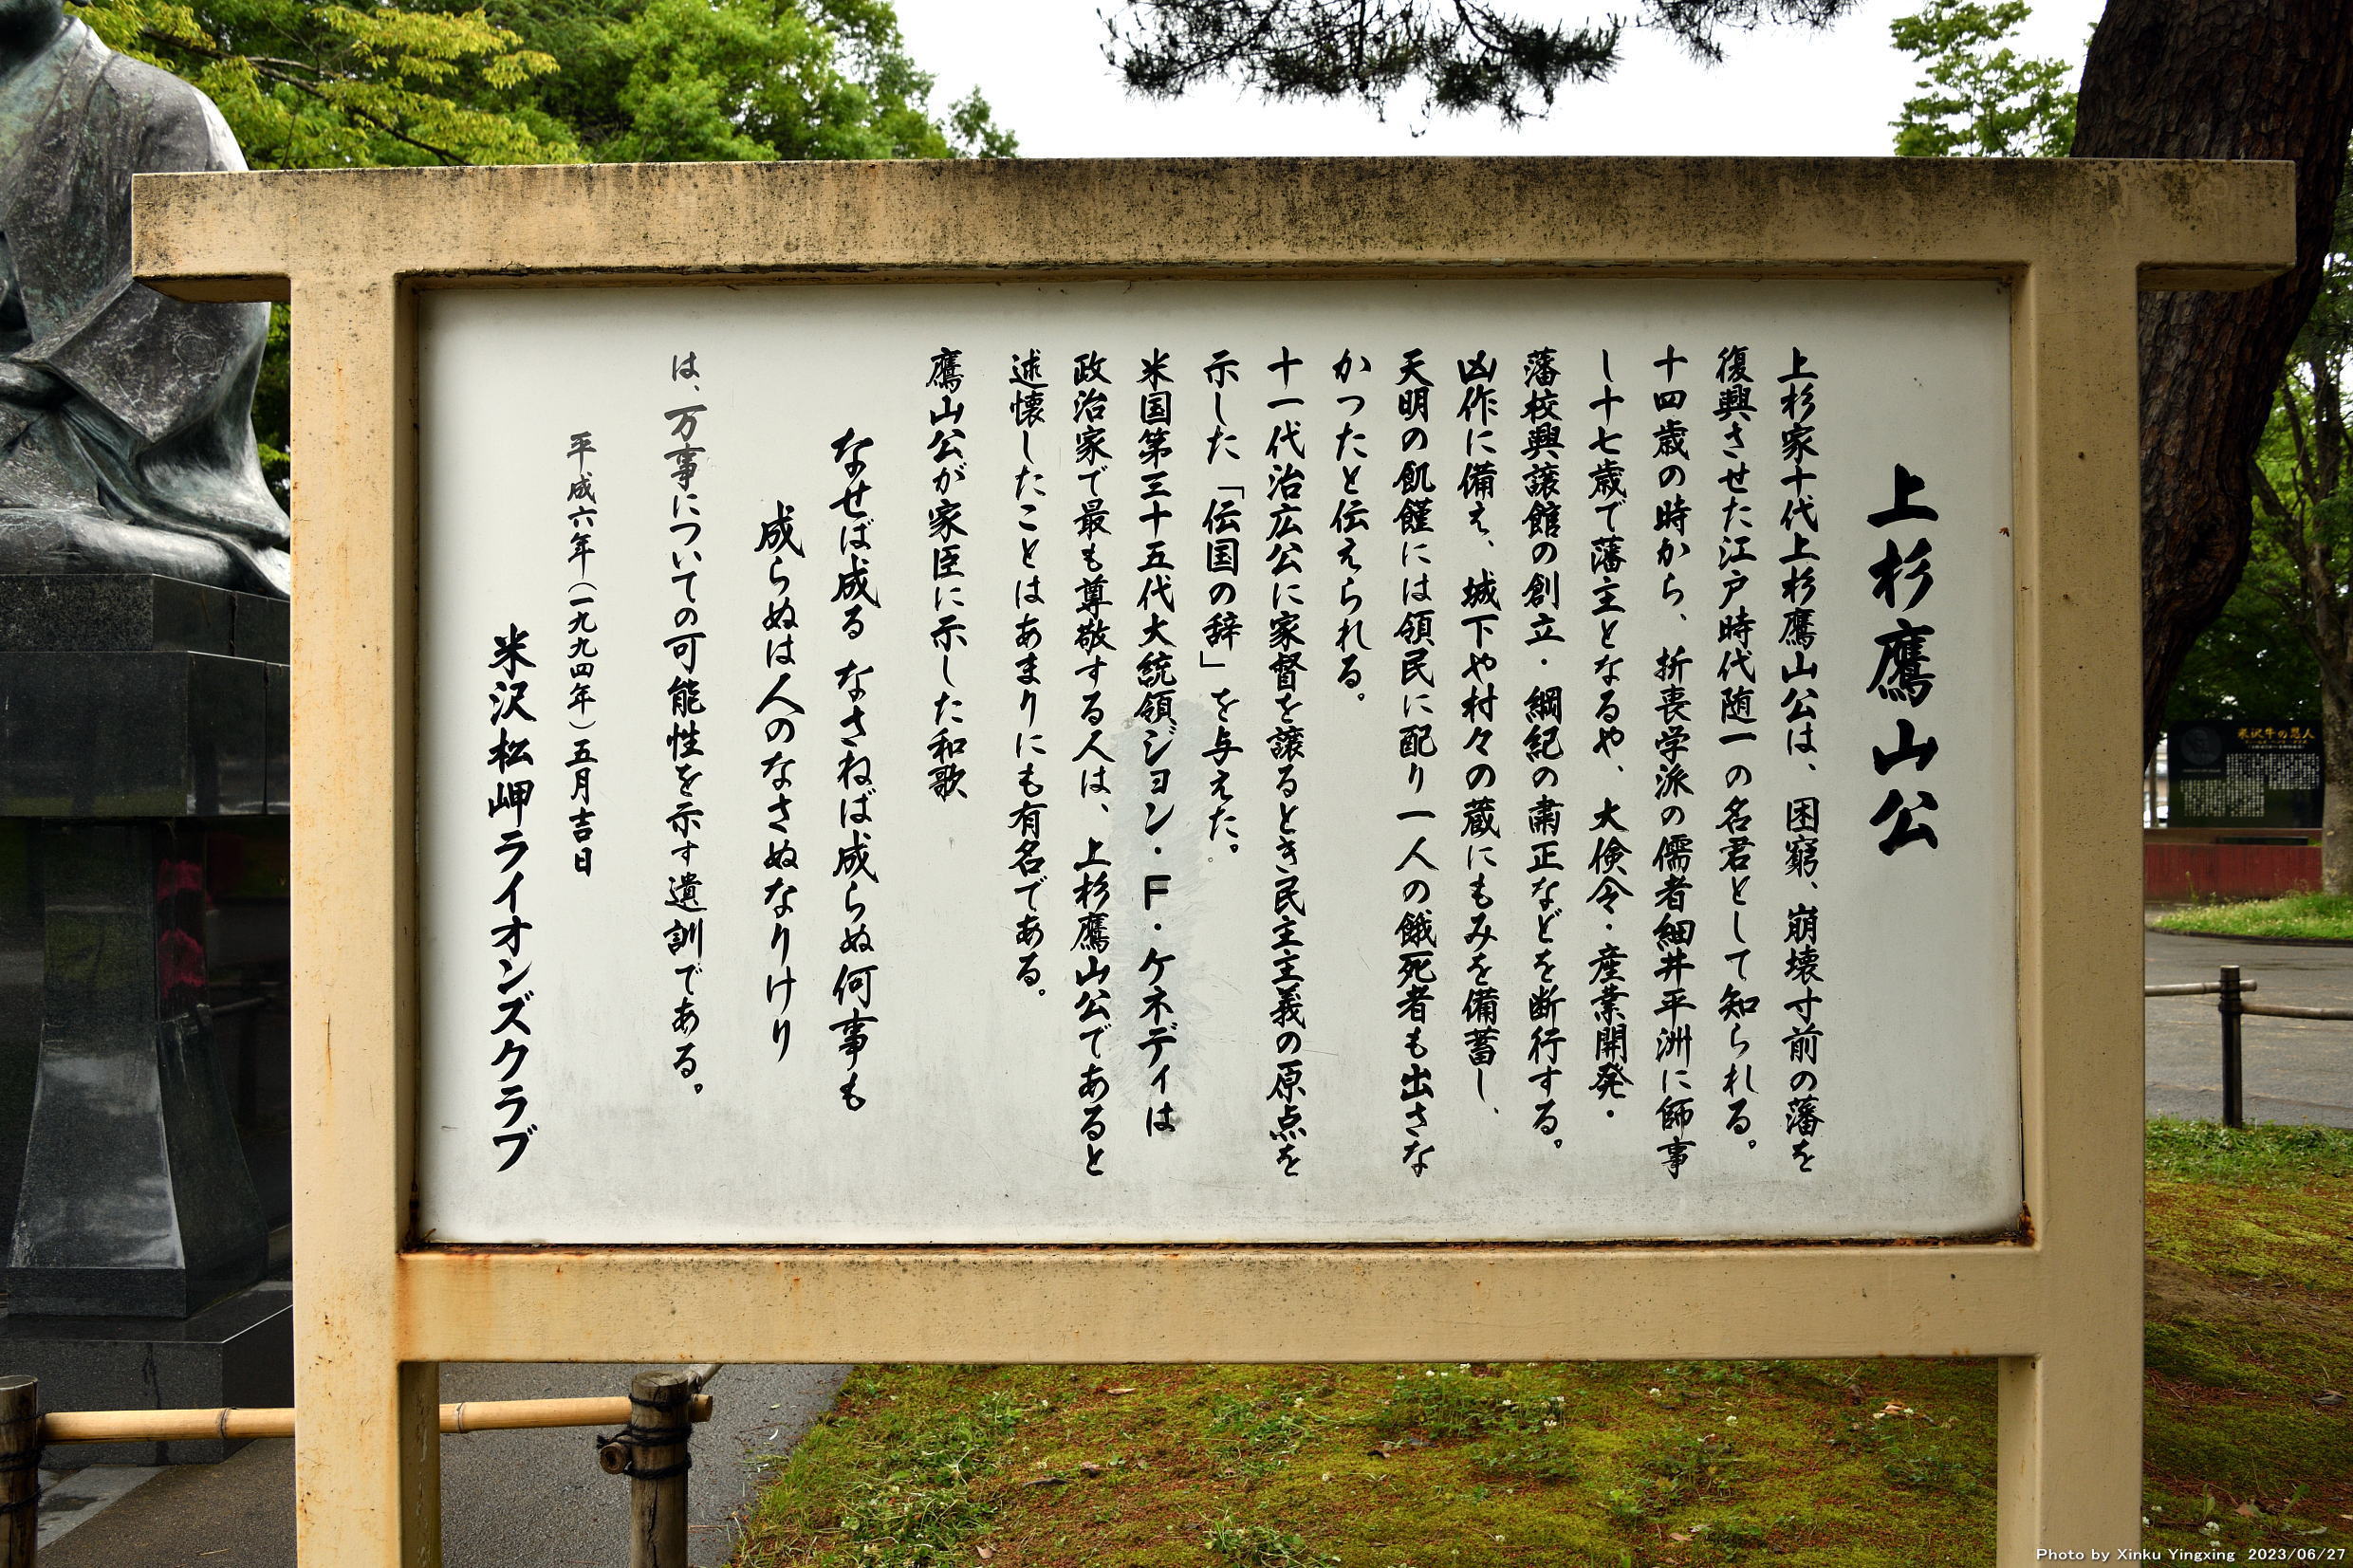 上杉鷹山公
上杉家十代上杉鷹山公は、困窮、崩壊寸前の藩を
復興させた江戸時代随一の名君として知られる。
十四歳の時から、折衷学派の儒者細井平洲に師事
し十七歳で藩主となるや、大倹令・産業開発・
藩校興譲館の創立・綱紀の粛正などを断行する。
凶作に備え、城下や村々の蔵にもみを備蓄し、
天明の飢饉には領民に配り一人の餓死者も出さな
かったと伝えられる。
十一代治広公に家督を譲るとき民主主義の原点を
示した「伝国の辞」を与えた。
米国第三十五代大統領ジョン・F・ケネディは
政治家で最も尊敬する人は、上杉鷹山公であると
述懐したことはあまりにも有名である。
鷹山公が家臣に示した和歌
なせば成る なさねば成らぬ何事も
成らぬは人のなさぬなりけり
は、万事についての可能性を示す遺訓である。
平成六年（一九九四年）五月吉日
米沢松岬ライオンズクラブ
米沢牛の恩人
Photo by Xinku Yingxing 2023/06/27